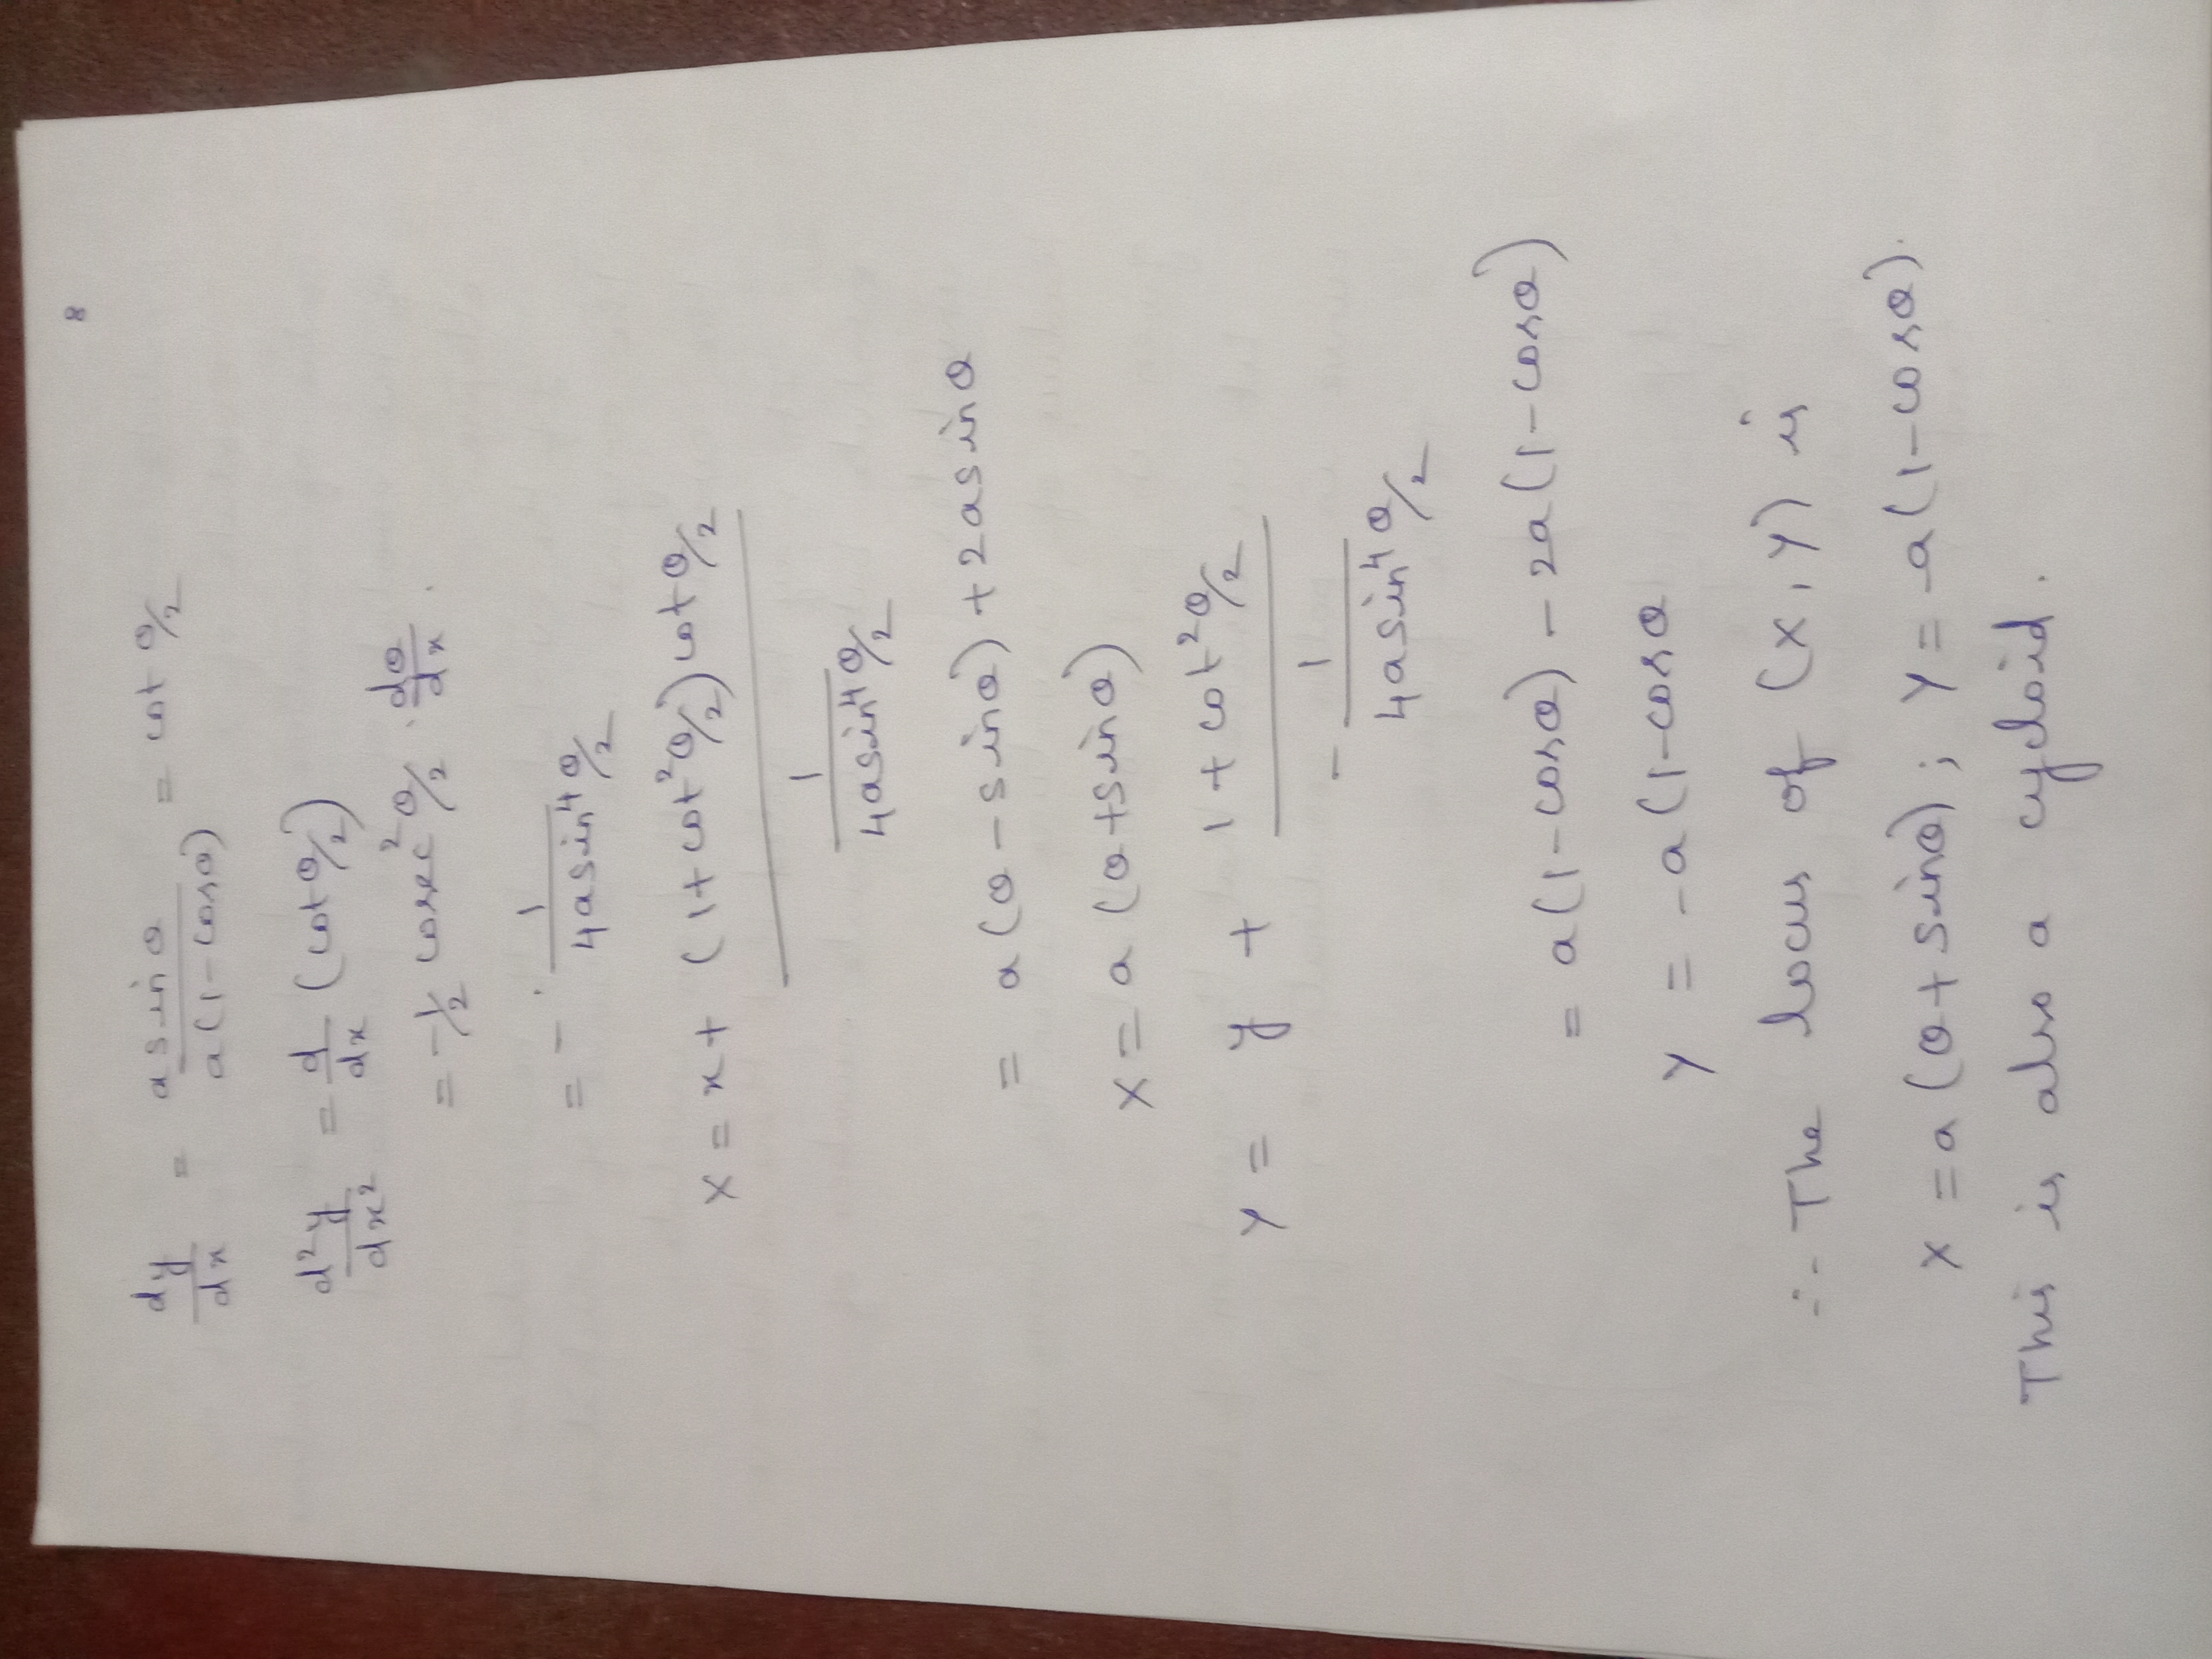 8
dy/dx = a sin θ / a(1 - cos θ) = cot θ/2
d²y/dx² = d/dx (cot θ/2)
= -1/2 cosec² θ/2 . dθ/dx .
= - 1/4a sin⁴ θ/2
X = x + (1 + cot² θ/2) cot θ/2 / 1/4a sin⁴ θ/2
= a(θ - sin θ) + 2a sin θ
X = a(θ + sin θ)
Y = y + 1 + cot² θ/2 / - 1/4a sin⁴ θ/2
= a(1 - cos θ) - 2a(1 - cos θ)
Y = -a(1 - cos θ
∴ The locus of (X, Y) is
X = a(θ + sin θ); Y = -a(1 - cos θ).
This is also a cycloid.